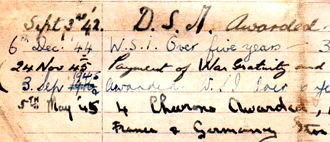 Sept 3rd '42. D.S.A. Awarded
6th Dec. '44 W.S.I. Over five years 3
24 Nov 45 Payment of War Gratuity and
3 Sep 1945 Awarded W.S.I over
5TH May 45 4 Chevrons Awarded,
France & Germany Star